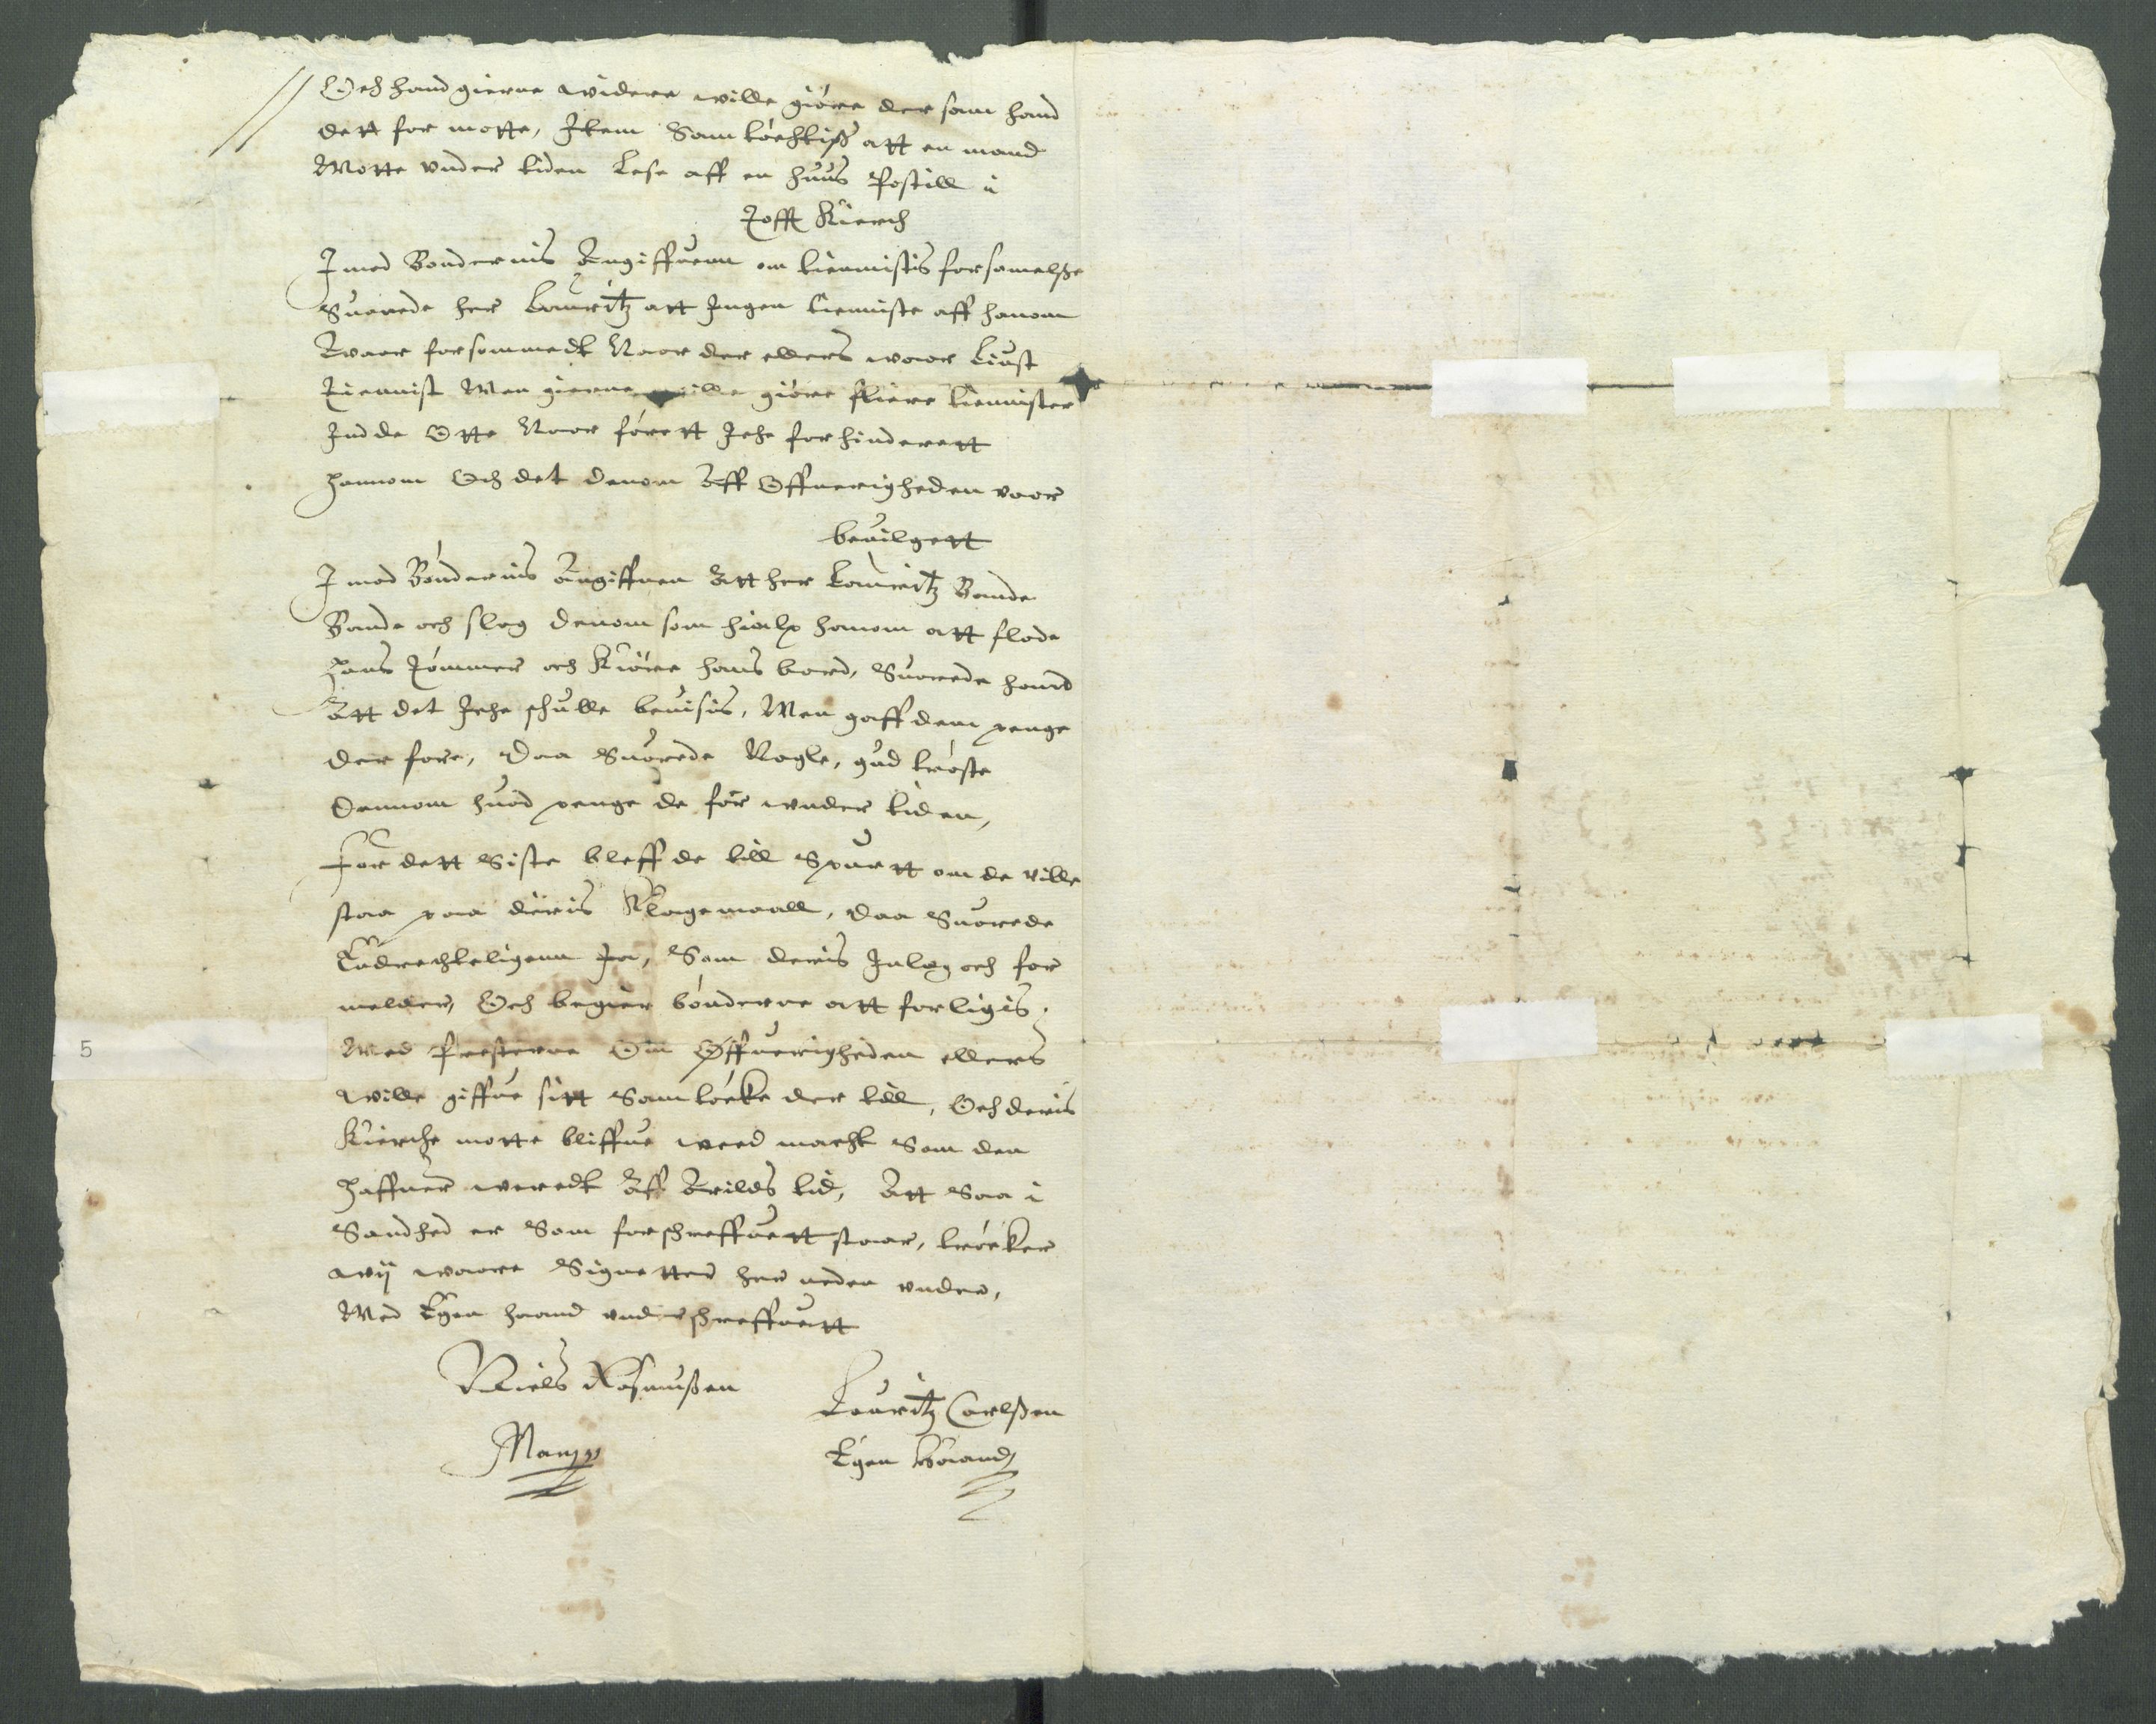 Och hand gierne widere wille giöre der som hand
dett for motte, Item Samtöchtiss att en mand
Motte vnder tiden Lese aff en huus Postill i
Tofft Kierch
Imod Bondernis Angiffuenn om tiennistis forsomelsse
Suarede her Lauritz att Ingen tienniste aff hanom
Waar forsommedt Naar der ellers waar Liust
Tiennist Men gierne wille giöre fliere tiennister
Indde Otte Naar förett Iche forhinderett
Hannom Och det denom Aff Offuerigheden vaar
beuilgett
Imod Böndernis Angiffuen Att her Lauritz Bande
Bande och slog denom som hialp hanom att flode
Hans Tömmer och Kiöre hans bord, Suarede hand
Att det Iche schulle beuisis, Men gaff dem penge
der fore, Daa Suarede Nogle, gud tröste
Dennom huad penge de för wnder tiden,
For dett Siste bleff de till Spurtt om de ville
staa paa dieris Klagemaall, Daa Suarede
Endrechteligenn Ja, Som deris Inleg och for
melder, Och begier bönderne att forligis
Med Presterne Om Øffuerigheden ellers
wille giffue sitt Samtöcke der till, Och deris
Kierche motte bliffue weed macht Som den
Haffuer weredt Aff Arilds tid, Att Saa i
Sandhed er Som forschreffuett staar, tröcker
wij waare Signetter her neden vnder,
Med Egen haand vnderschreffuett
Niels Rasmussen
Lauritz Carlssen
Manpp
Egen Haand
5